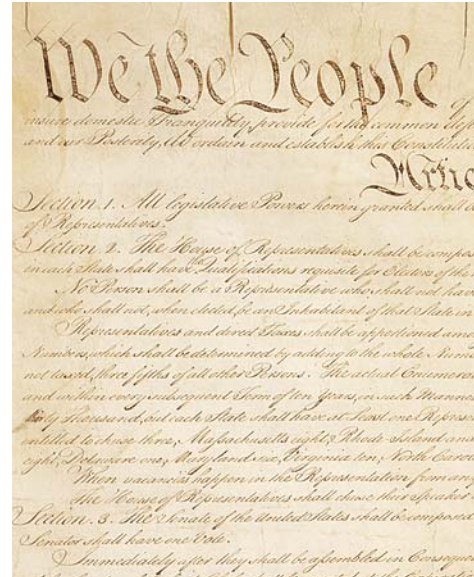 We the People of
insure domestic Tranquility, provide for the common def
and our Posterity, do ordain and establish this Constitutio
Artic
Section. 1. All legislative Powers herein granted shall be
of Representatives.
Section. 2. The House of Representatives shall be compos
in each State shall have Qualifications requisite for Electors of the
No Person shall be a Representative who shall not have
and who shall not, when elected, be an Inhabitant of that State in
Representatives and direct Taxes shall be apportioned amo
Numbers, which shall be determined by adding to the whole Num
not taxed, three fifths of all other Persons. The actual Enumera
and within every subsequent Term of ten Years, in such Manne
thirty Thousand, but each State shall have at Least one Represe
entitled to chuse three, Massachusetts eight, Rhode-Island an
eight, Delaware one, Maryland six, Virginia ten, North Caro
When vacancies happen in the Representation from any
The House of Representatives shall chuse their Speaker
Section. 3. The Senate of the United States shall be composed
Senator shall have one Vote.
Immediately after they shall be assembled in Consequen